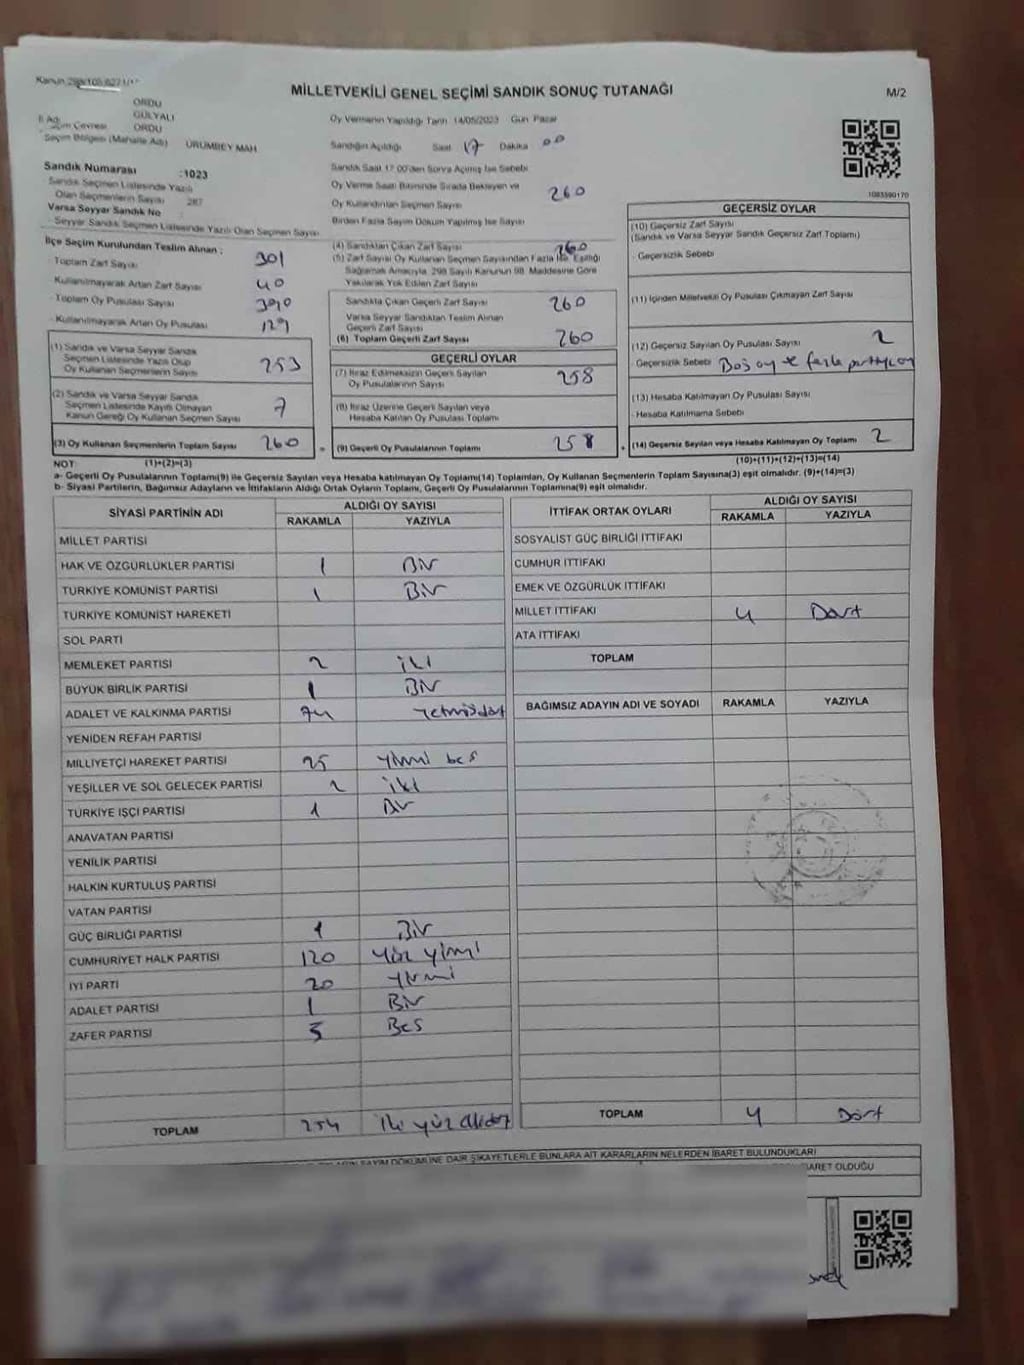 MİLLETVEKİLİ GENEL SEÇİMİ SANDIK SONUÇ TUTANAĞI
M/2
ORDU
GÜLYALI
İl Adı
Seçim Çevresi ORDU
Seçim Bölgesi (Mahalle Adı) URUMBEY MAH.
Oy Vermenin Yapıldığı Tarih 14/05/2023 Gün Pazar
Sandığın Açıldığı Saat 17 Dakika 00
Sandık Numarası :1023
Sandık Seçmen Listesinde Yazılı
Olan Seçmenlerin Sayısı 287
Varsa Seyyar Sandık No
Seyyar Sandık Seçmen Listesinde Yazılı Olan Seçmen Sayısı
Sandık Saat 17:00'den Sonra Açılmış İse Sebebi
Oy Verme Saati Bitiminde Sırada Bekleyen ve
Oy Kullandırılan Seçmen Sayısı 260
Birden Fazla Sayım Döküm Yapılmış İse Sayısı
1083590170
İlçe Seçim Kurulundan Teslim Alınan :
Toplam Zarf Sayısı 301
Kullanılmayarak Artan Zarf Sayısı 40
- Toplam Oy Pusulası Sayısı 390
- Kullanılmayarak Artan Oy Pusulası 129
(1) Sandık ve Varsa Seyyar Sandık
Seçmen Listesinde Yazılı Olup
Oy Kullanan Seçmenlerin Sayısı 253
(2) Sandık ve Varsa Seyyar Sandık
Seçmen Listesinde Kayıtlı Olmayan
Kanun Gereği Oy Kullanan Seçmen Sayısı 7
(3) Oy Kullanan Seçmenlerin Toplam Sayısı 260
(4) Sandıktan Çıkan Zarf Sayısı 260
(5) Zarf Sayısı Oy Kullanan Seçmen Sayısından Fazla İse, Eşitliği
Sağlamak Amacıyla, 298 Sayılı Kanunun 98. Maddesine Göre
Yakılarak Yok Edilen Zarf Sayısı
Sandıkta Çıkan Geçerli Zarf Sayısı 260
Varsa Seyyar Sandıktan Teslim Alınan
Geçerli Zarf Sayısı
(6) Toplam Geçerli Zarf Sayısı 260
GEÇERLİ OYLAR
(7) İtiraz Edilmeksizin Geçerli Sayılan
Oy Pusulalarının Sayısı 258
(8) İtiraz Üzerine Geçerli Sayılan veya
Hesaba Katılan Oy Pusulası Toplamı
= (9) Geçerli Oy Pusulalarının Toplamı 258
GEÇERSİZ OYLAR
(10) Geçersiz Zarf Sayısı
(Sandık ve Varsa Seyyar Sandık Geçersiz Zarf Toplamı)
- Geçersizlik Sebebi
(11) İçinden Milletvekili Oy Pusulası Çıkmayan Zarf Sayısı
(12) Geçersiz Sayılan Oy Pusulası Sayısı 2
Geçersizlik Sebebi Boş oy ve fazla partiye oy
(13) Hesaba Katılmayan Oy Pusulası Sayısı
- Hesaba Katılmama Sebebi
+ (14) Geçersiz Sayılan veya Hesaba Katılmayan Oy Toplamı 2
NOT: (1)+(2)=(3)
(10)+(11)+(12)+(13)=(14)
a- Geçerli Oy Pusulalarının Toplamı(9) ile Geçersiz Sayılan veya Hesaba katılmayan Oy Toplamı(14) Toplamları, Oy Kullanan Seçmenlerin Toplam Sayısına(3) eşit olmalıdır. (9)+(14)=(3)
b- Siyasi Partilerin, Bağımsız Adayların ve İttifakların Aldığı Ortak Oyların Toplamı, Geçerli Oy Pusulalarının Toplamına(9) eşit olmalıdır.
SİYASİ PARTİNİN ADI ALDIĞI OY SAYISI
RAKAMLA YAZIYLA
MİLLET PARTİSİ
HAK VE ÖZGÜRLÜKLER PARTİSİ 1 Bir
TÜRKİYE KOMÜNİST PARTİSİ 1 Bir
TÜRKİYE KOMÜNİST HAREKETİ
SOL PARTİ
MEMLEKET PARTİSİ 2 iki
BÜYÜK BİRLİK PARTİSİ 1 Bir
ADALET VE KALKINMA PARTİSİ 74 Yetmişdört
YENİDEN REFAH PARTİSİ
MİLLİYETÇİ HAREKET PARTİSİ 25 Yirmi beş
YEŞİLLER VE SOL GELECEK PARTİSİ 2 iki
TÜRKİYE İŞÇİ PARTİSİ 1 Bir
ANAVATAN PARTİSİ
YENİLİK PARTİSİ
HALKIN KURTULUŞ PARTİSİ
VATAN PARTİSİ
GÜÇ BİRLİĞİ PARTİSİ 1 Bir
CUMHURİYET HALK PARTİSİ 120 Yüz yirmi
İYİ PARTİ 20 Yirmi
ADALET PARTİSİ 1 Bir
ZAFER PARTİSİ 5 Beş
TOPLAM 254
İTTİFAK ORTAK OYLARI ALDIĞI OY SAYISI
RAKAMLA YAZIYLA
SOSYALİST GÜÇ BİRLİĞİ İTTİFAKI
CUMHUR İTTİFAKI
EMEK VE ÖZGÜRLÜK İTTİFAKI
MİLLET İTTİFAKI 4 Dört
ATA İTTİFAKI
TOPLAM
BAĞIMSIZ ADAYIN ADI VE SOYADI RAKAMLA YAZIYLA
TOPLAM 4 Dört
SAYIM DÖKÜMÜNE DAİR ŞİKAYETLERLE BUNLARA AİT KARARLARIN NELERDEN İBARET BULUNDUKLARI
İBARET OLDUĞU